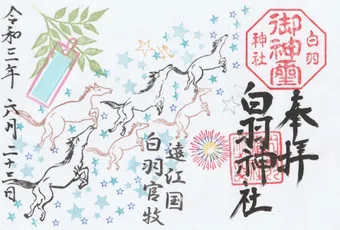 奉拝
白羽
御神璽
神社
白羽神社
遠江国
白羽官牧
令和三年 六月 二十三日